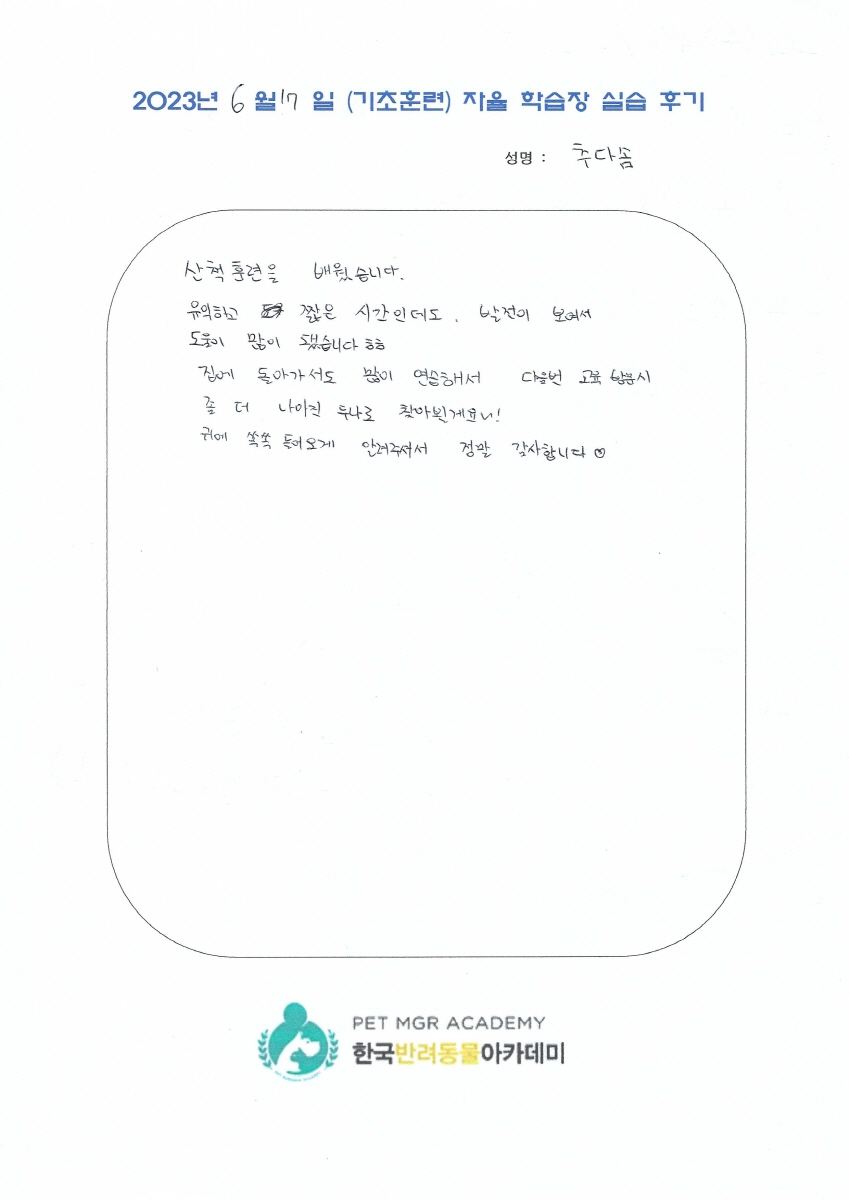 2023년 6월 17일 (기초훈련) 자율 학습장 실습 후기
성명 : 추다솜
산책훈련을 배웠습니다.
유익하고 짧은 시간인데도, 발전이 보여서
도움이 많이 됐습니다 ㅎㅎ
집에 돌아가서도 많이 연습해서 다음번 교육 방문시
좀 더 나아진 두나로 찾아뵐게요~!
귀에 쏙쏙 들어오게 알려주셔서 정말 감사합니다 ♡
PET MGR ACADEMY
한국반려동물아카데미